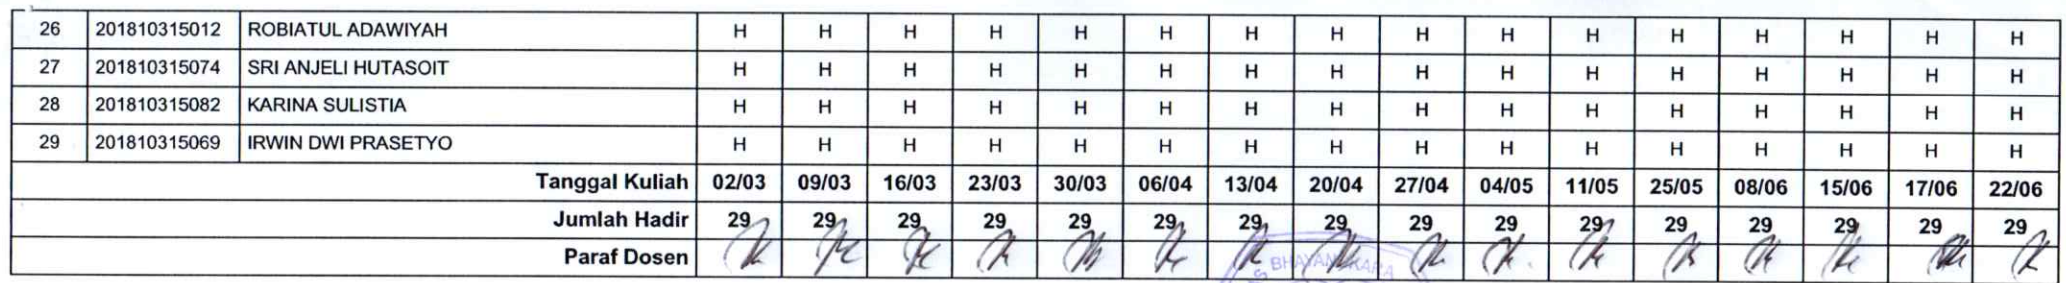 26 201810315012 ROBIATUL ADAWIYAH H H H H H H H H H H H H H H H H
27 201810315074 SRI ANJELI HUTASOIT H H H H H H H H H H H H H H H H
28 201810315082 KARINA SULISTIA H H H H H H H H H H H H H H H H
29 201810315069 IRWIN DWI PRASETYO H H H H H H H H H H H H H H H H
Tanggal Kuliah 02/03 09/03 16/03 23/03 30/03 06/04 13/04 20/04 27/04 04/05 11/05 25/05 08/06 15/06 17/06 22/06
Jumlah Hadir 29 29 29 29 29 29 29 29 29 29 29 29 29 29 29 29
Paraf Dosen
BHAYANGKARA